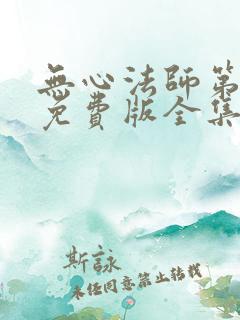 無心法師第
免費版全集
斯詠
未经同意禁止转载